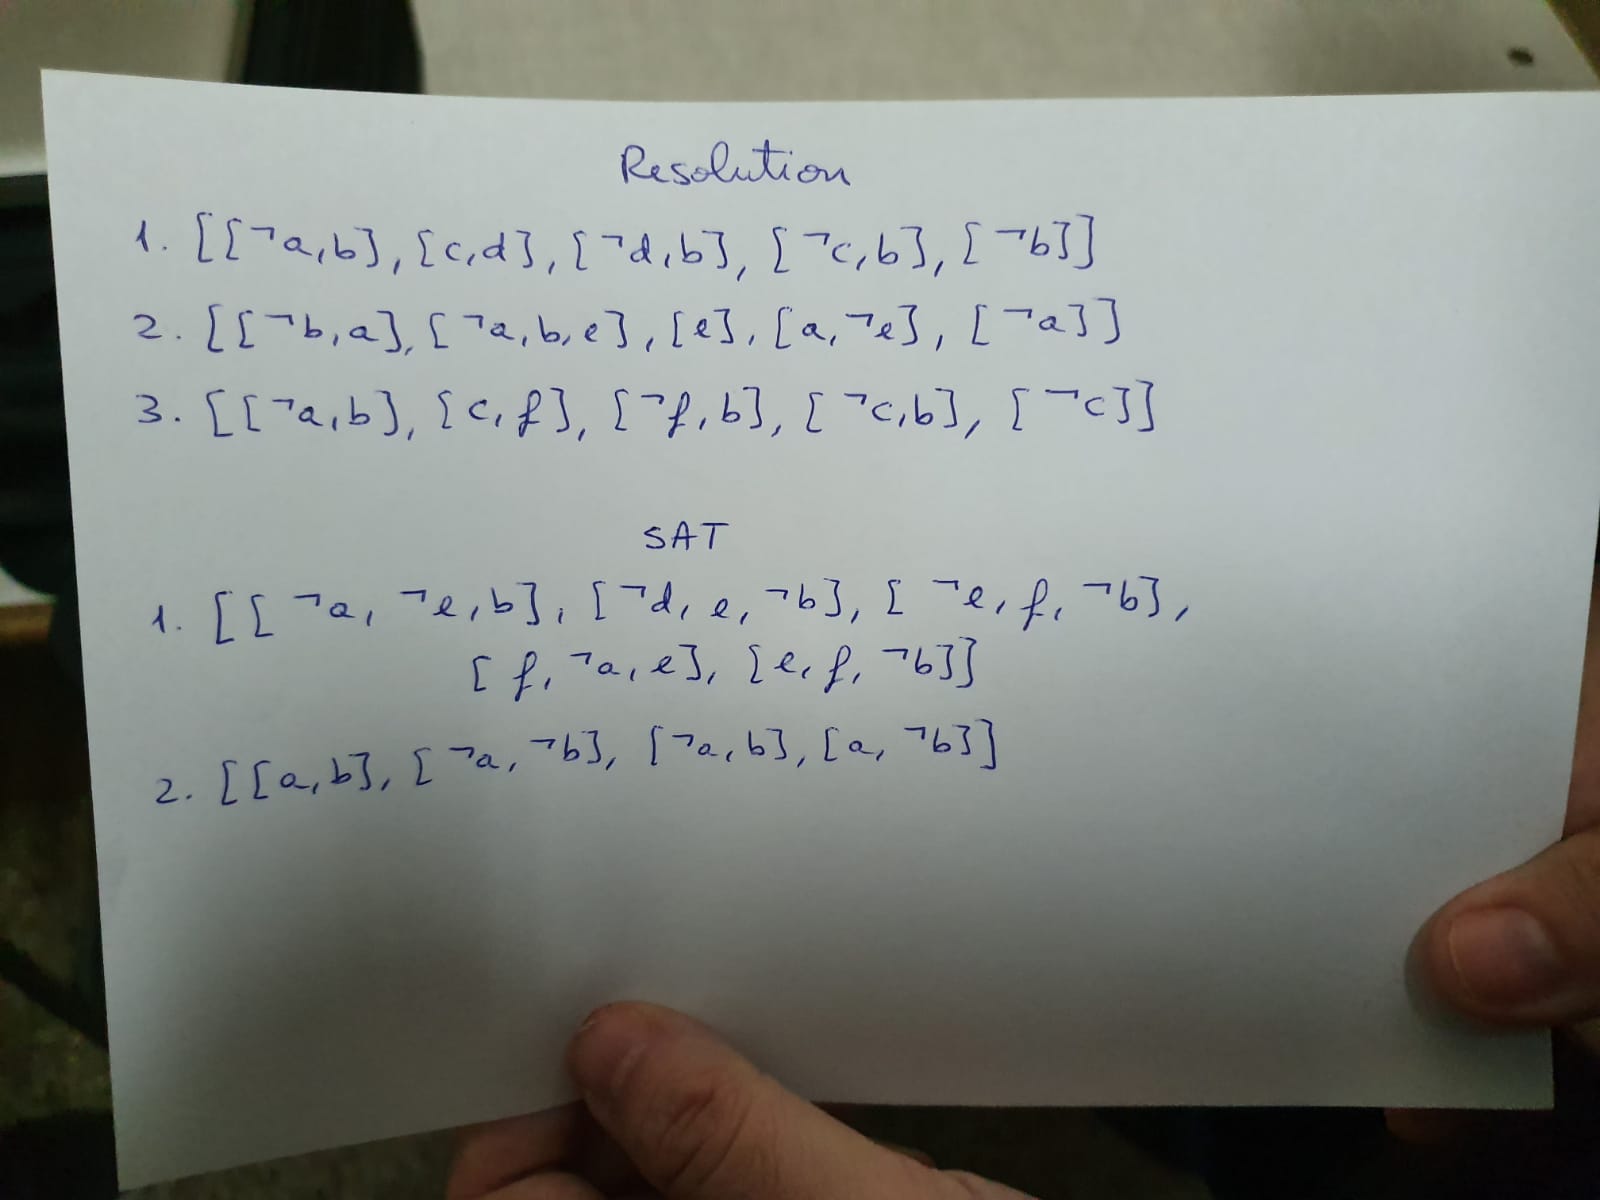 Resolution
1. [[¬a,b],[c,d],[¬d,b],[¬c,b],[¬b]]
2. [[¬b,a],[¬a,b,e],[e],[a,¬e],[¬a]]
3. [[¬a,b],[c,f],[¬f,b],[¬c,b],[¬c]]
SAT
1. [[¬a,¬e,b],[¬d,e,¬b],[¬e,f,¬b],
[f,¬a,e],[e,f,¬b]]
2. [[a,b],[¬a,¬b],[¬a,b],[a,¬b]]